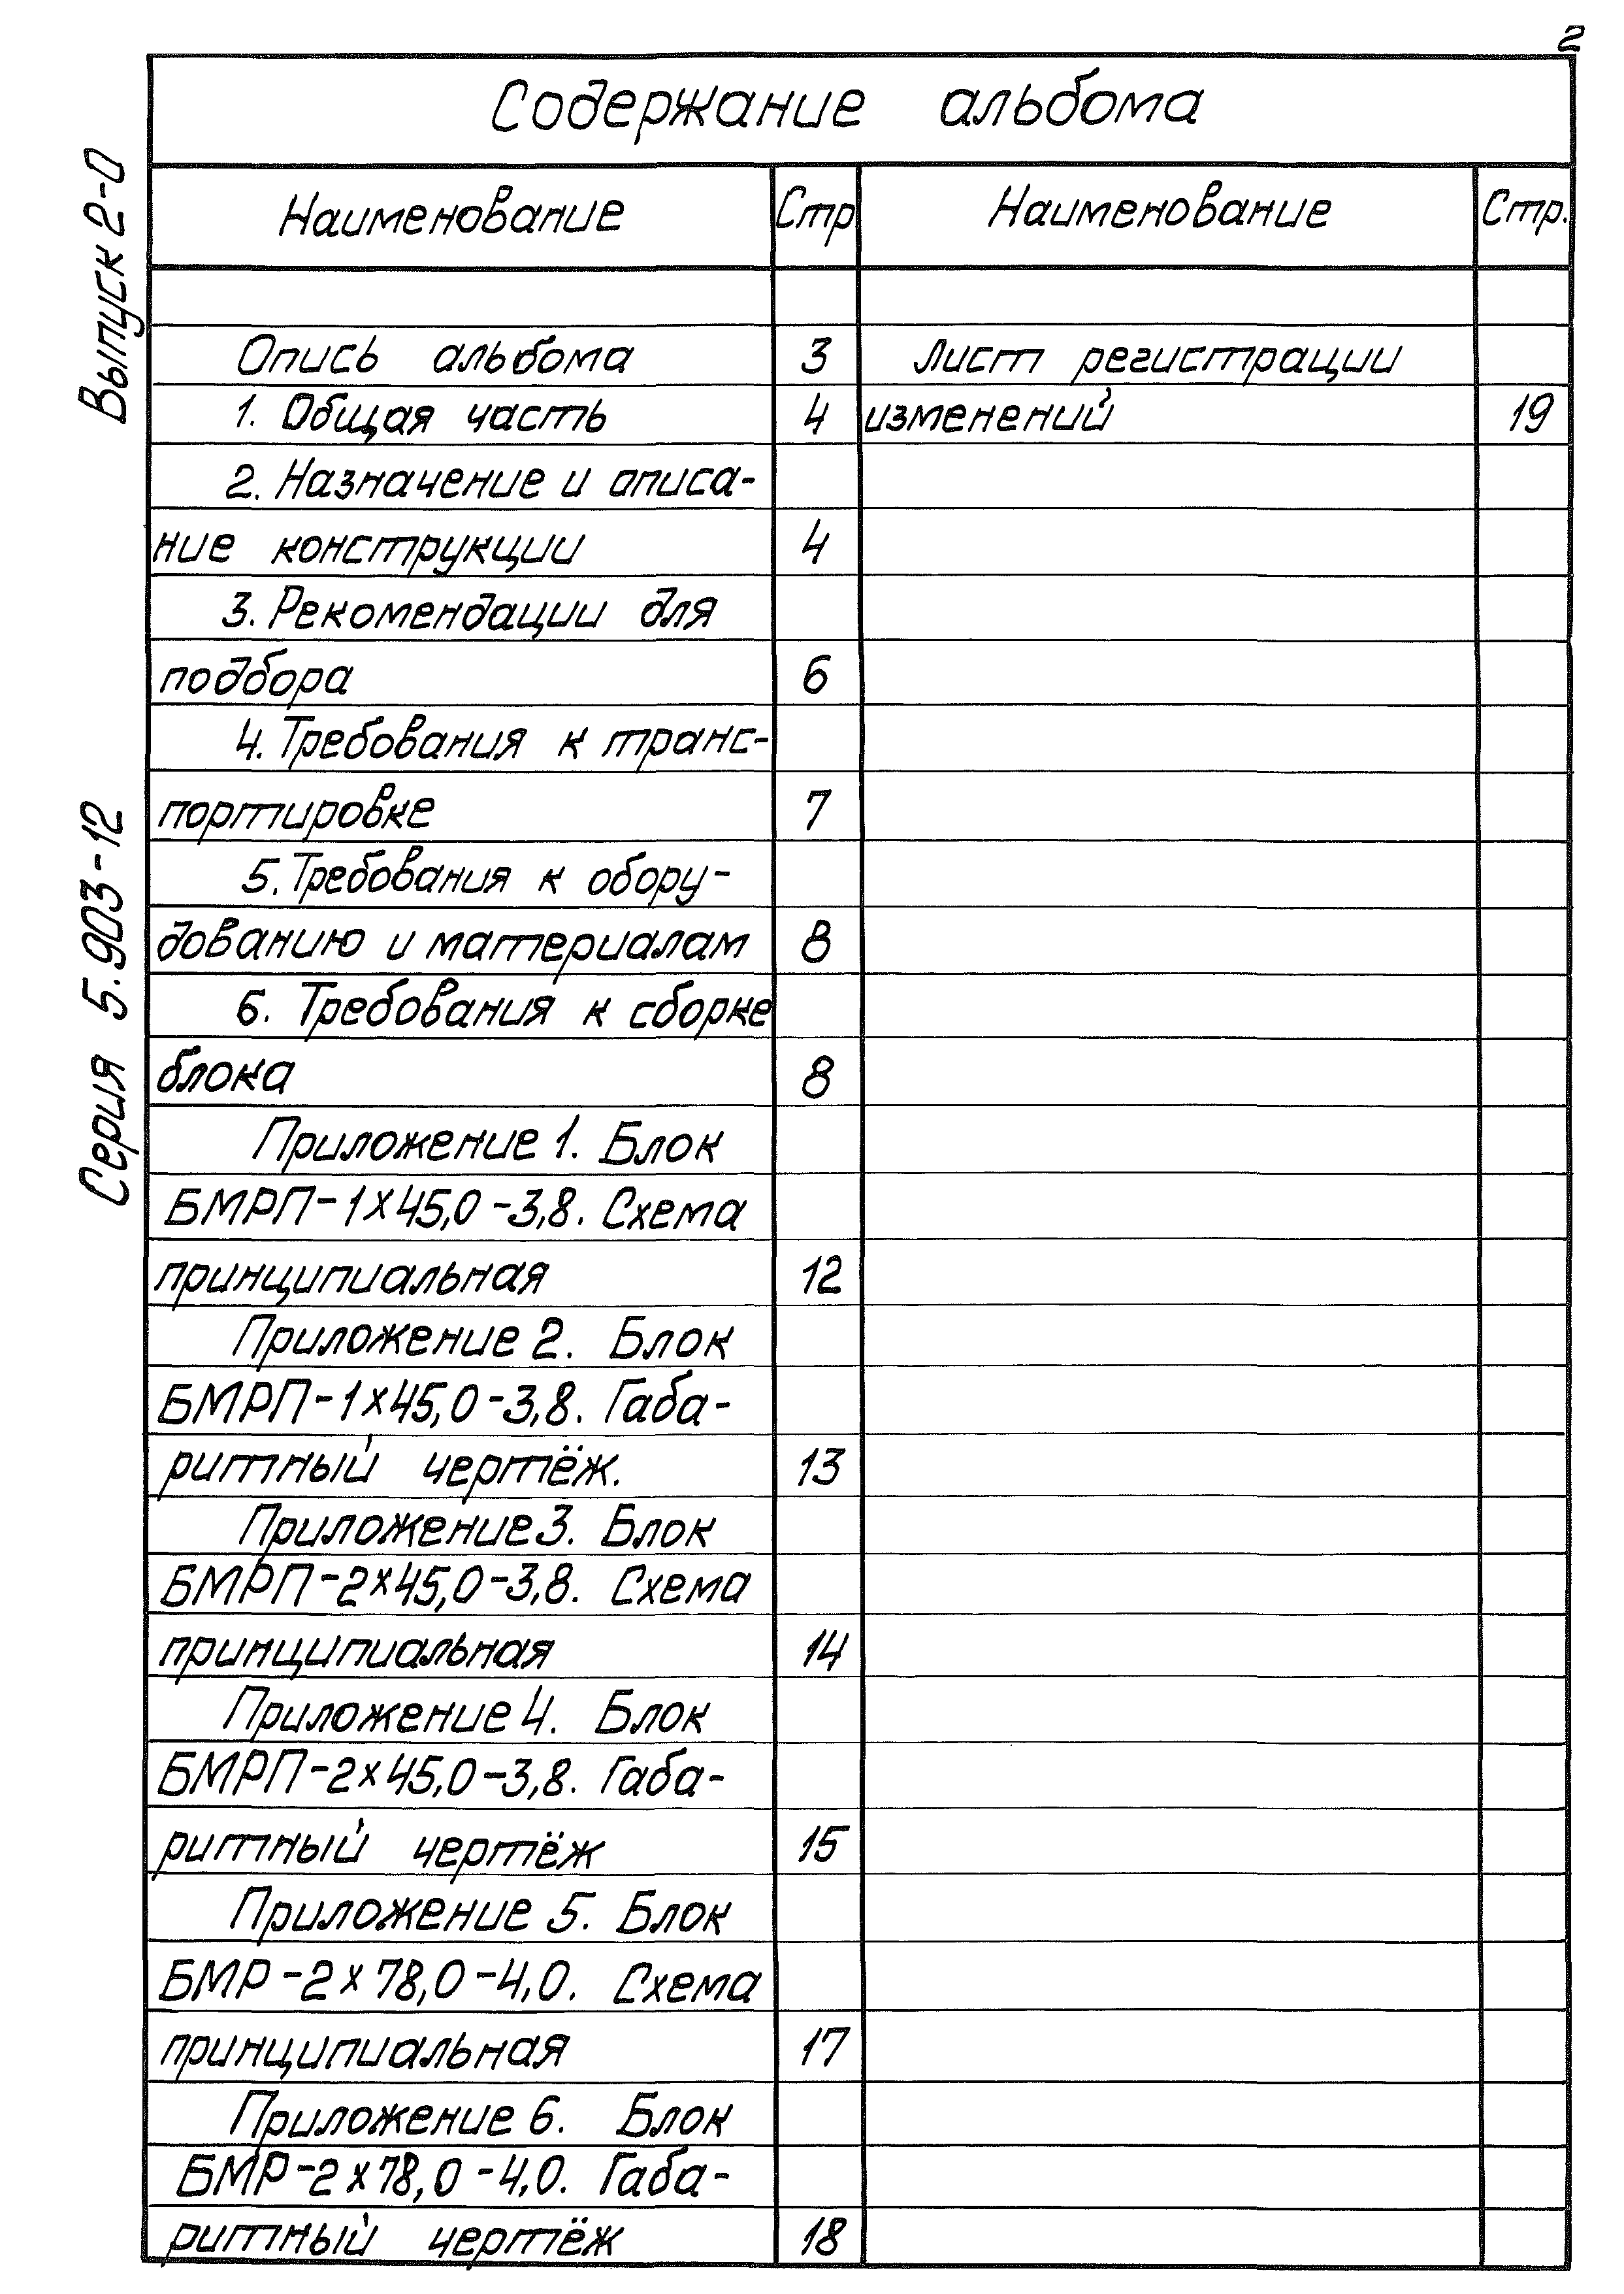 2
Содержание альбома
Выпуск 2-0
Серия 5.903-12
Наименование Стр Наименование Стр.
Опись альбома 3 Лист регистрации
1. Общая часть 4 изменений 19
2. Назначение и описа-
ние конструкции 4
3. Рекомендации для
подбора 6
4. Требования к транс-
портировке 7
5. Требования к обору-
дованию и материалам 8
6. Требования к сборке
блока 8
Приложение 1. Блок
БМРП-1х45,0-3,8. Схема
принципиальная 12
Приложение 2. Блок
БМРП-1х45,0-3,8. Габа-
ритный чертёж. 13
Приложение 3. Блок
БМРП-2х45,0-3,8. Схема
принципиальная 14
Приложение 4. Блок
БМРП-2х45,0-3,8. Габа-
ритный чертёж 15
Приложение 5. Блок
БМР-2х78,0-4,0. Схема
принципиальная 17
Приложение 6. Блок
БМР-2х78,0-4,0. Габа-
ритный чертёж 18